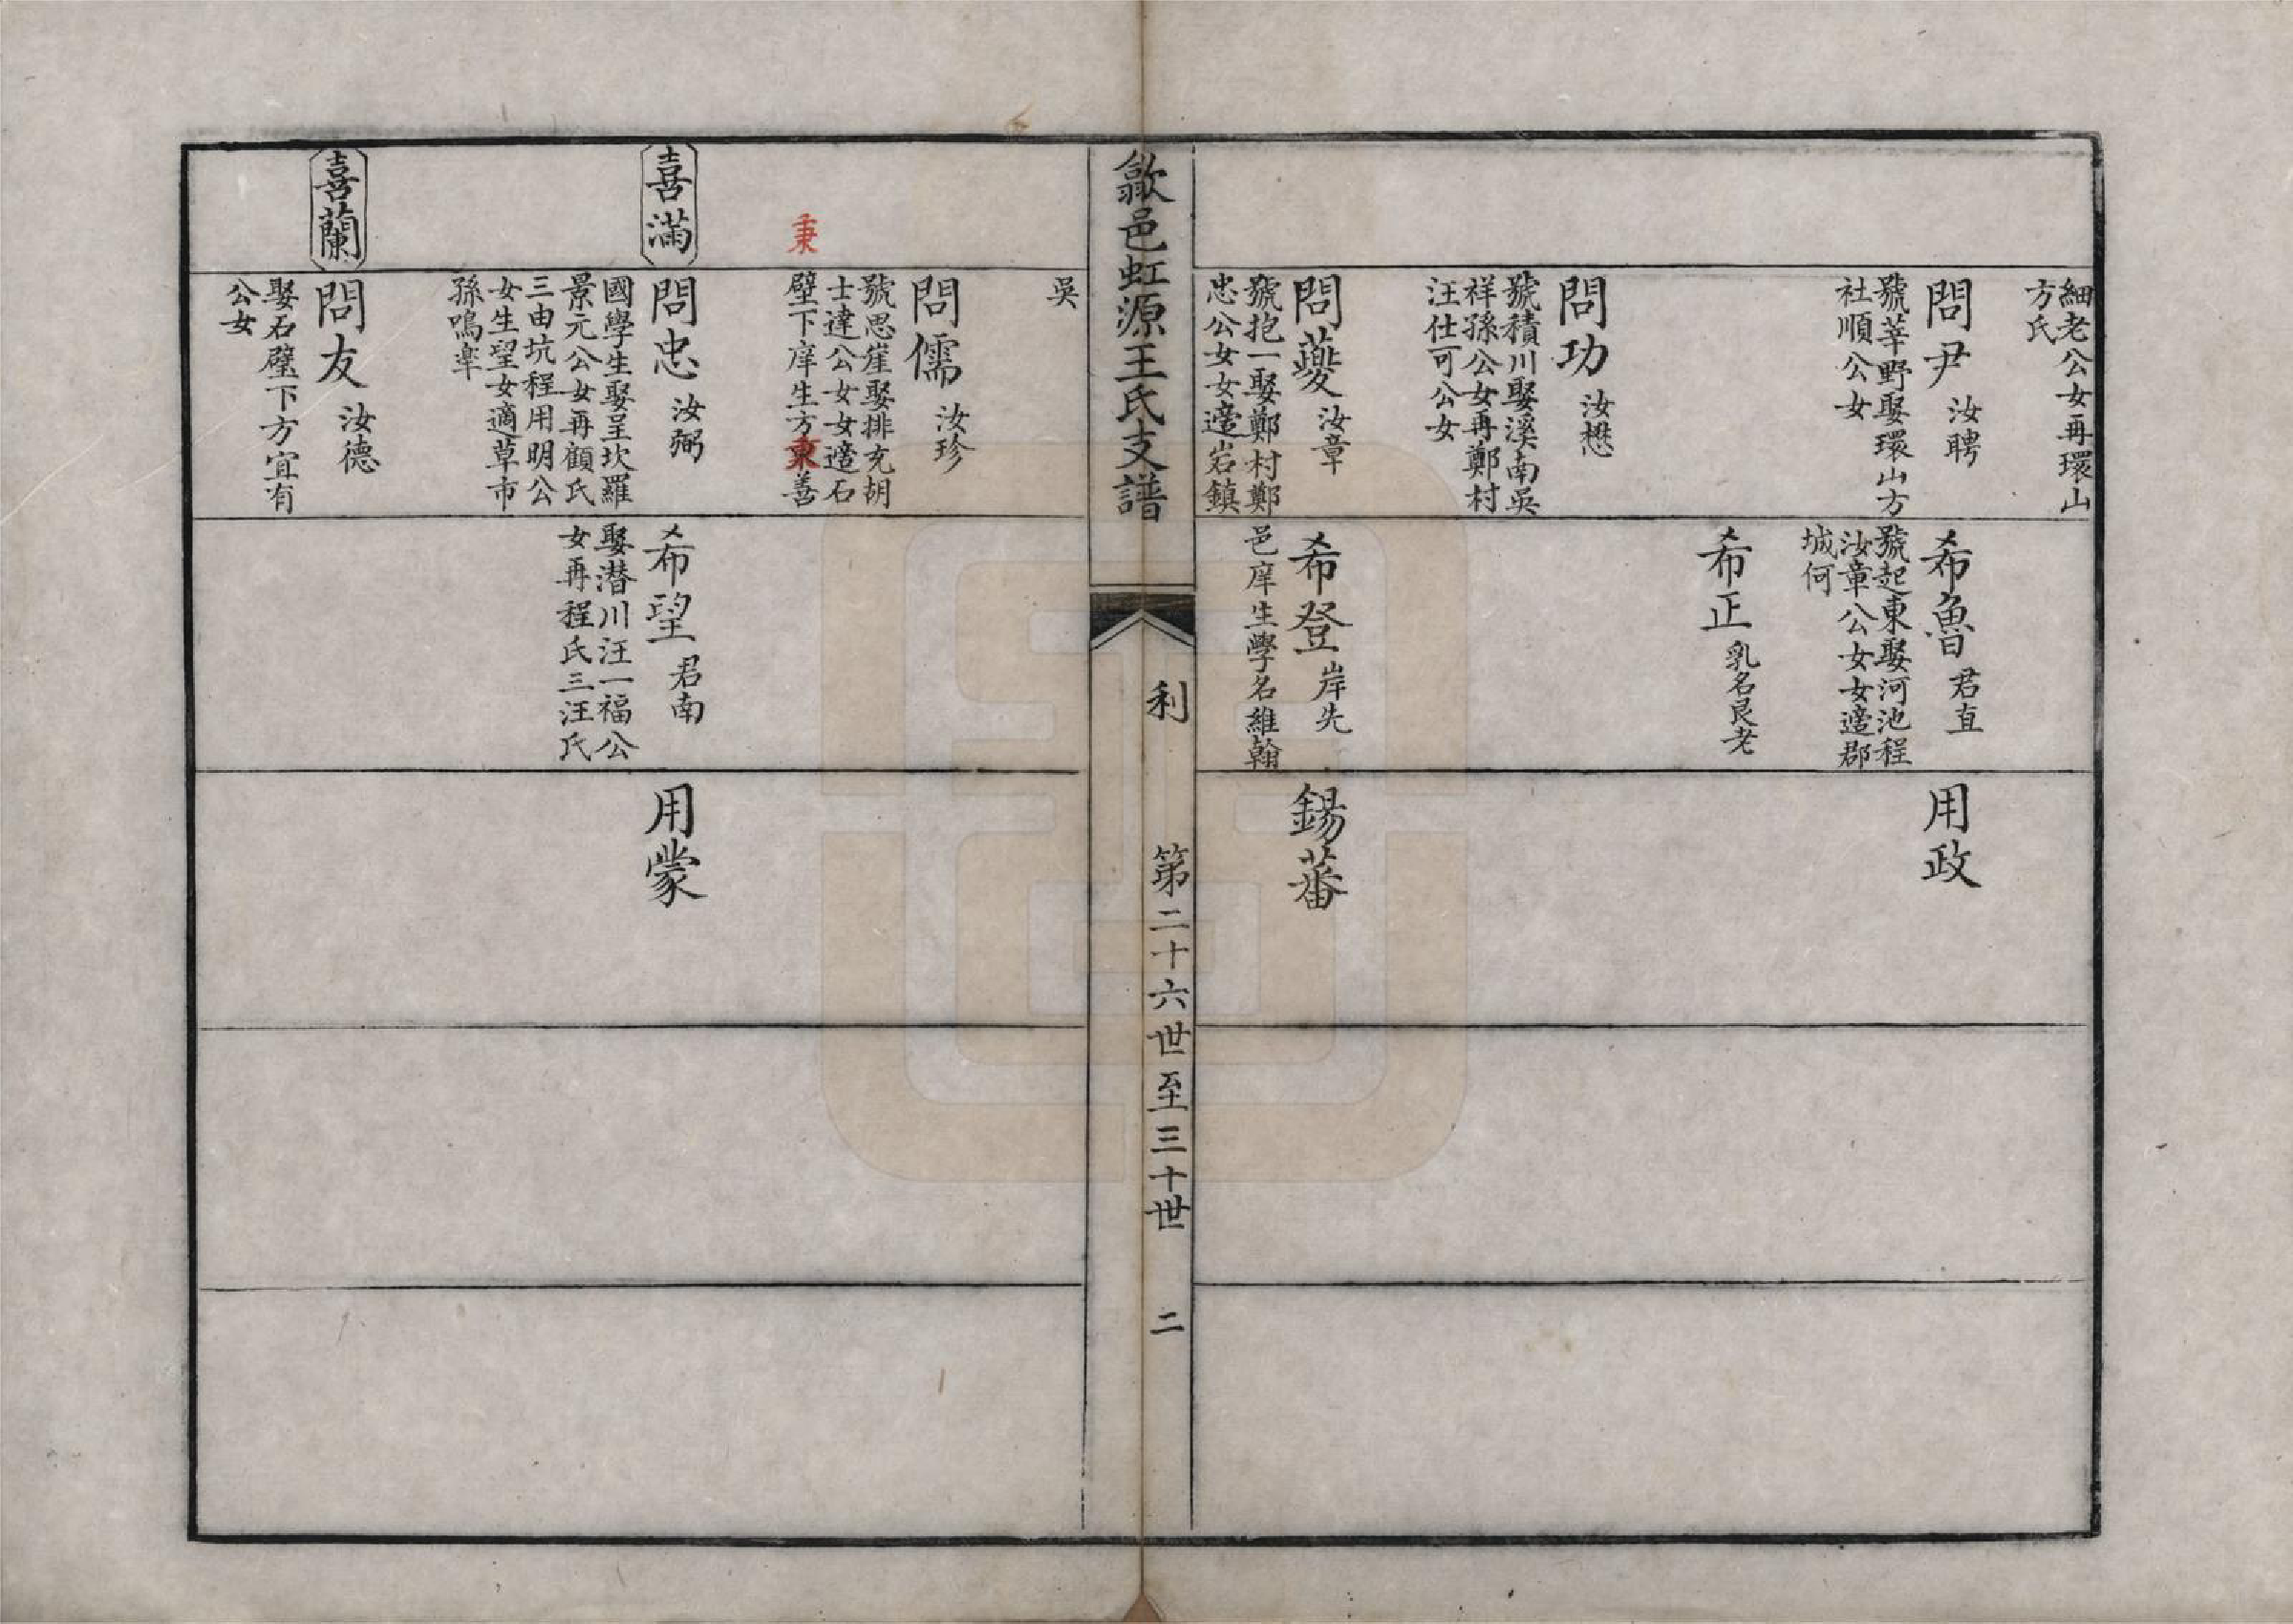 細老公女再環山
方氏
問尹
汝聘
號莘野娶環山方
社順公女
問功
汝懋
號積川娶溪南吳
祥孫公女再鄭村
汪仕可公女
問夔
汝章
號抱一娶鄭村鄭
忠公女女適岩鎮
希魯
君直
號起東娶河池程
汝章公女女適郡
城何
希正
乳名良老
希登
岸先
邑庠生學名維翰
用政
錫蕃
歙邑虹源王氏支譜
利
第二十六世至三十世
二
吳
問儒
汝珍
號思崖娶排充胡
士達公女女適石
壁下庠生方秉善
秉
喜滿
問忠
汝弼
國學生娶呈坎羅
景元公女再顧氏
三由坑程用明公
女生望女適草市
孫鳴率
喜蘭
問友
汝德
娶石壁下方宜有
公女
希望
君南
娶潛川汪一福公
女再程氏三汪氏
用蒙